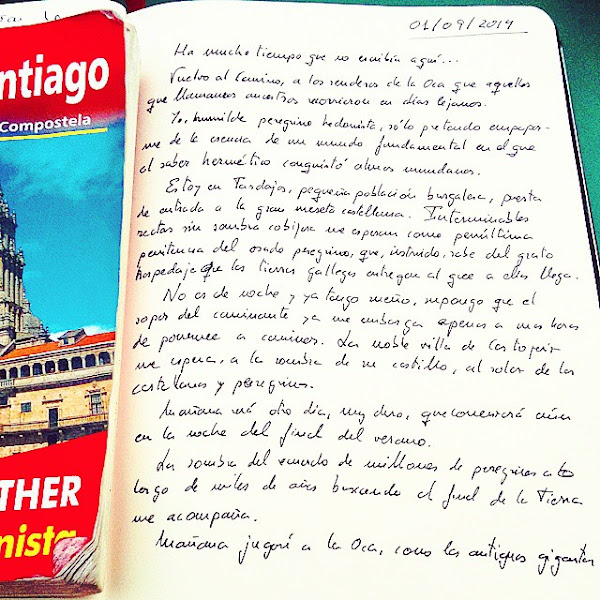 ntiago
Compostela
THER
nista
01/09/2014
Ha mucho tiempo que no escribía aquí...
Vuelvo al Camino, a los senderos de la Oca que aquellos
que llamamos ancestros recorrieron en días lejanos.
Yo, humilde peregrino hedonista, sólo pretendo empapar-
me de la esencia de un mundo fundamental en el que
el saber hermético conquistó almas mundanas.
Estoy en Tardajos, pequeña población burgalesa, puerta
de entrada a la gran meseta castellana. Interminables
rectas sin sombra cobijera me esperan como penúltima
penitencia del osado peregrino, que, instruido, sabe del grato
hospedaje que las tierras gallegas entregan al que a ellas llega.
No es de noche y ya tengo sueño, supongo que el
sopor del caminante ya me embarga apenas a unas horas
de ponerme a caminar. La noble villa de Castrojeriz
me espera, a la sombra de su castillo, al solar de los
castellanos y peregrinos.
Mañana será otro día, muy duro, que comenzará aún
en la noche del final del verano.
La sombra del recuerdo de millones de peregrinos a lo
largo de miles de años buscando el final de la Tierra
me acompaña.
Mañana jugaré a la Oca, como los antiguos gigantes